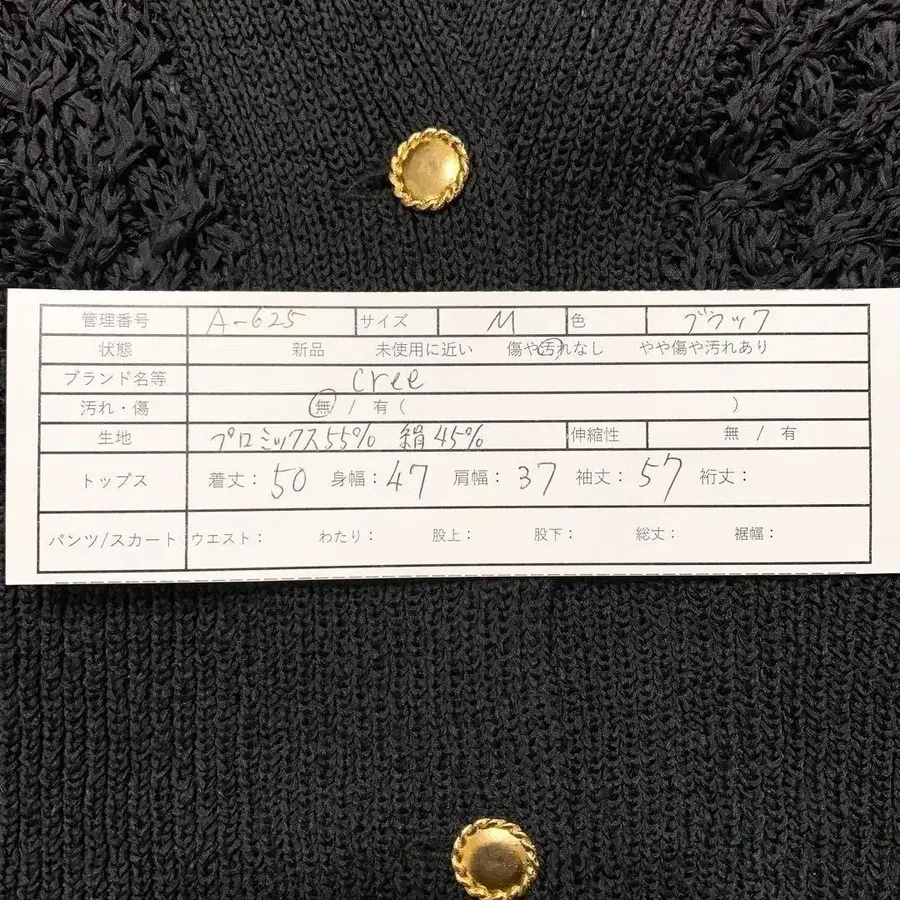 管理番号 A-625 サイズ M 色 ブラック
状態 新品 未使用に近い 傷や汚れなし やや傷や汚れあり
ブランド名等 cree
汚れ・傷 無 / 有 ( )
生地 プロミックス55% 絹45% 伸縮性 無 / 有
トップス 着丈: 50 身幅: 47 肩幅: 37 袖丈: 57 裄丈:
パンツ/スカート ウエスト: わたり: 股上: 股下: 総丈: 裾幅: